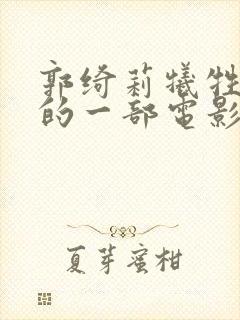 郭绮莉犠牲
的一部電影
夏芽蜜柑